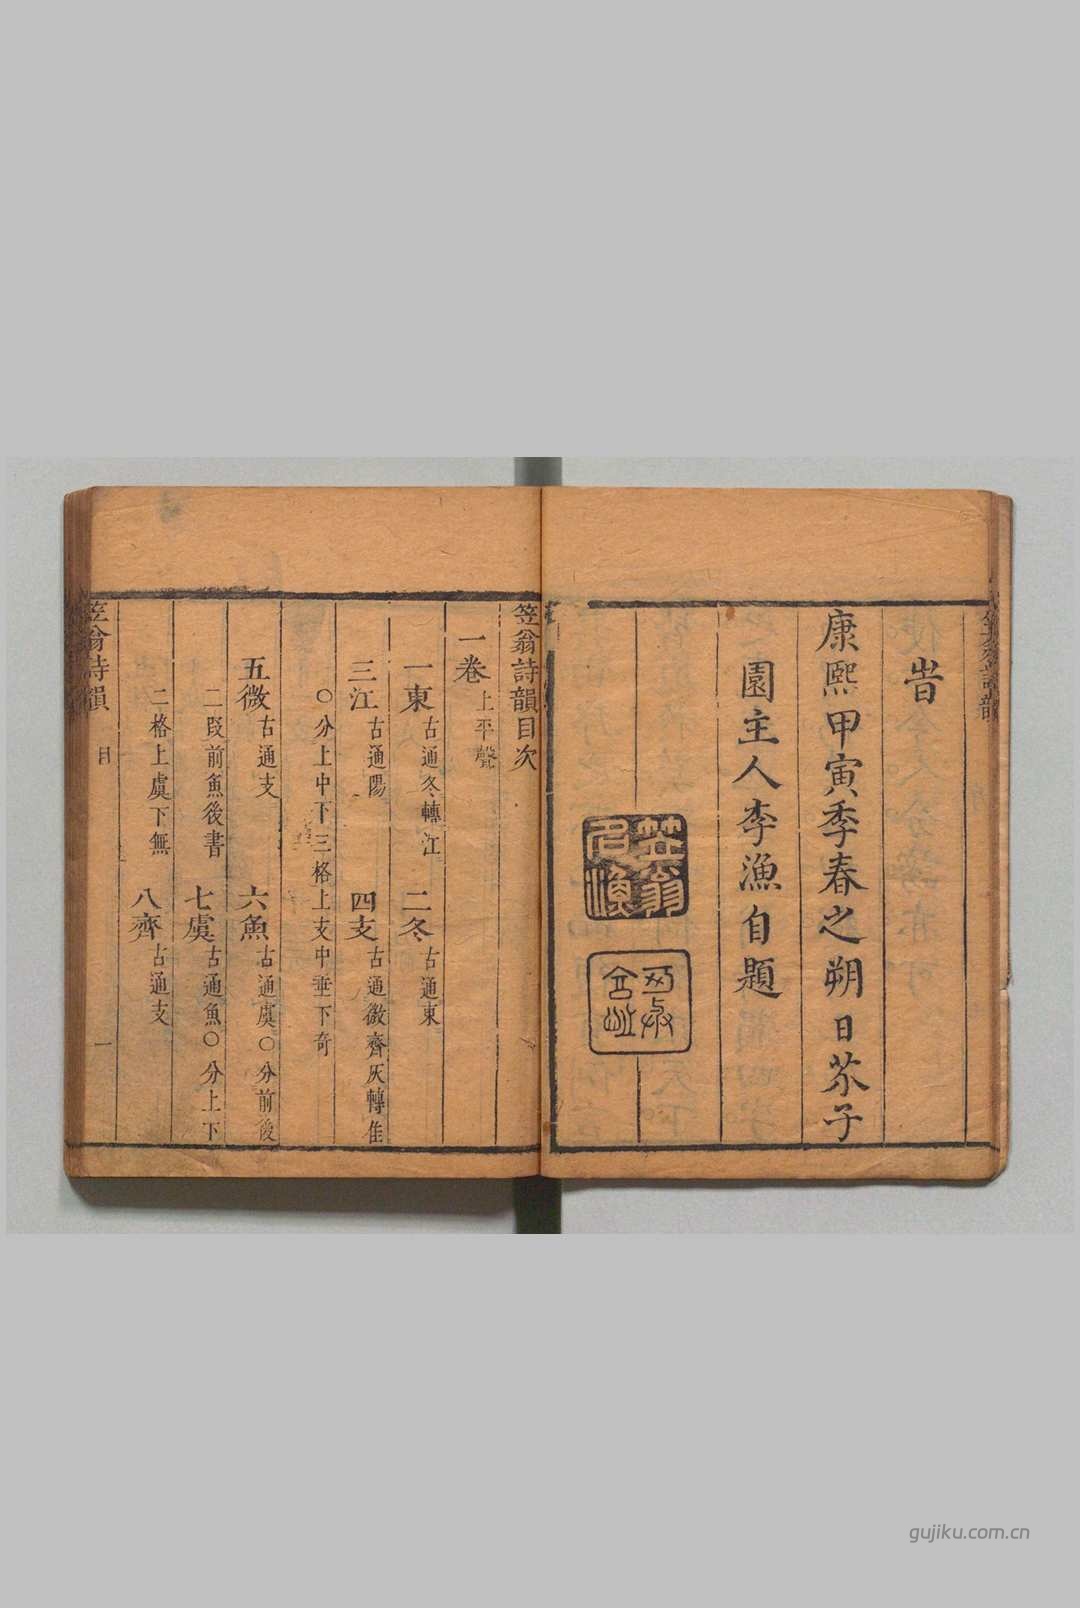 笠翁詩韻
旹
康熙甲寅季春之朔日芥子
園主人李漁自題
笠翁詩韻目次
一卷 上平聲
一東 古通冬轉江 二冬 古通東
三江 古通陽 四支 古通微齊灰轉佳
○分上中下三格上支中垂下奇
五微 古通支 六魚 古通虞○分前後
二叚前魚後書 七虞 古通魚○分上下
二格上虞下無 八齊 古通支
笠翁詩韻 目 一
gujiku.com.cn